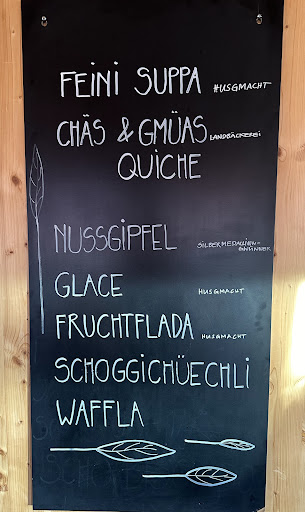 FEINI SUPPA #USGMACHT
CHÄS & GMÜAS LANDBÄCKEREI
QUICHE
NUSSGIPFEL SILBERMEDALLIEN-
GWÜNNER
GLACE HUSGMACHT
FRUCHTFLADA HUSGMACHT
SCHOGGICHÜECHLI
WAFFLA